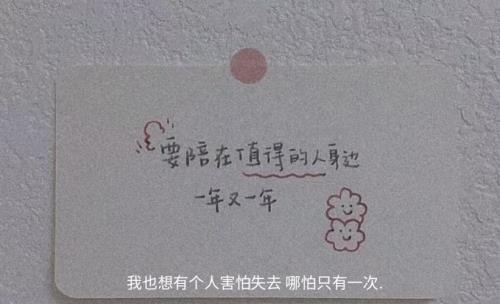 要陪在值得的人身边
一年又一年
我也想有个人害怕失去 哪怕只有一次.